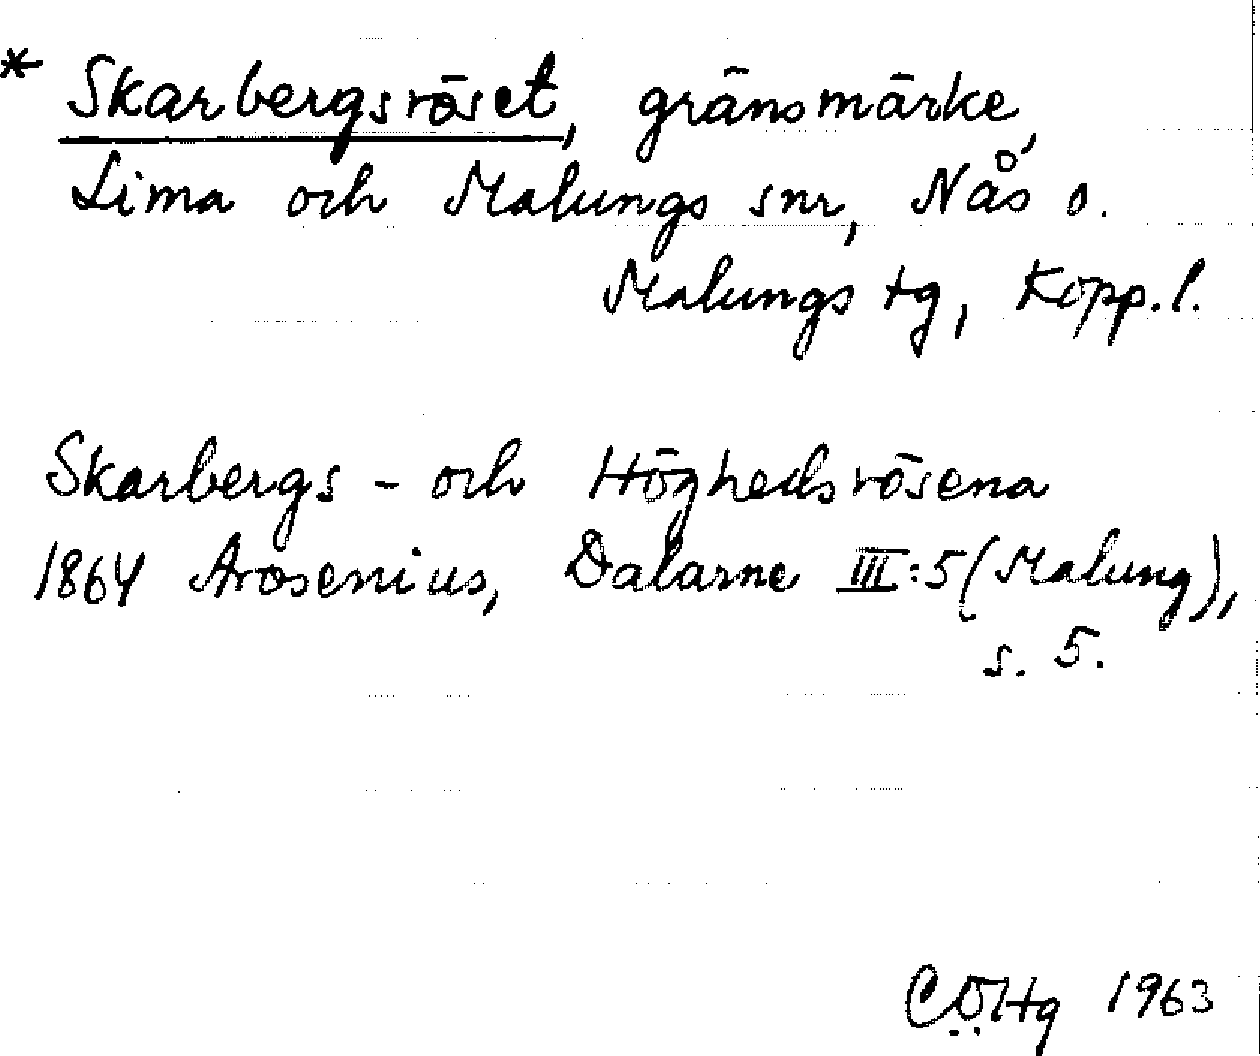 * Skarbergsröset, gränsmärke,
Lima och Malungs snr, Nås o.
Malungs tg, Kopp. l.
Skarbergs- och Höghedsrösena
1864 Arosenius, Dalarne III:5 (Malung),
s. 5.
CÖHg 1963